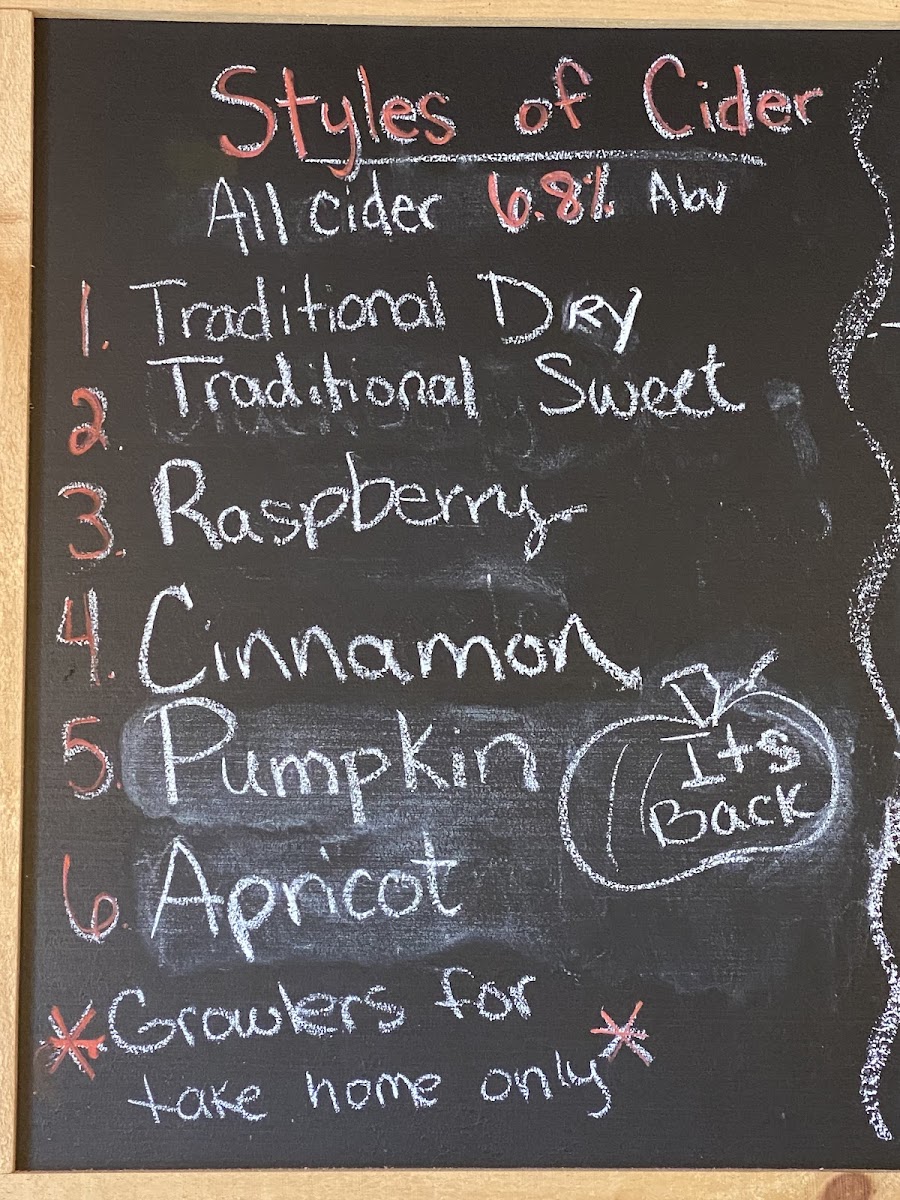 Styles of Cider
All cider 6.8% Abv
1. Traditional DRy
2. Traditional Sweet
3. Raspberry
4. Cinnamon
5. Pumpkin
Its
Back
6. Apricot
*Growlers for
take home only*